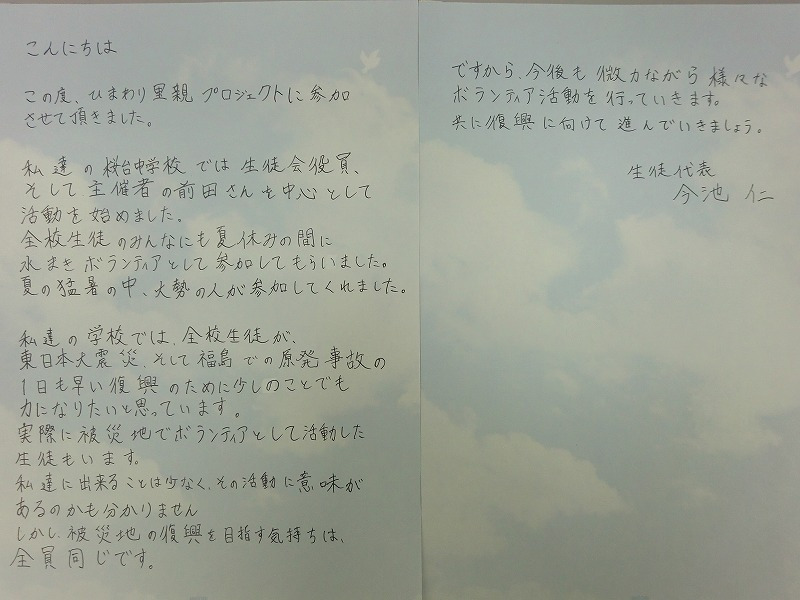 こんにちは
この度、ひまわり里親プロジェクトに参加
させて頂きました。
私達の桜台中学校では生徒会役員、
そして主催者の前田さんを中心として
活動を始めました。
全校生徒のみんなにも夏休みの間に
水まきボランティアとして参加してもらいました。
夏の猛暑の中、大勢の人が参加してくれました。
私達の学校では、全校生徒が、
東日本大震災、そして福島での原発事故の
1日も早い復興のために少しのことでも
力になりたいと思っています。
実際に被災地でボランティアとして活動した
生徒もいます。
私達に出来ることは少なく、その活動に意味が
あるのかも分かりません
しかし、被災地の復興を目指す気持ちは、
全員同じです。
ですから、今後も微力ながら様々な
ボランティア活動を行っていきます。
共に復興に向けて進んでいきましょう。
生徒代表
今池 仁